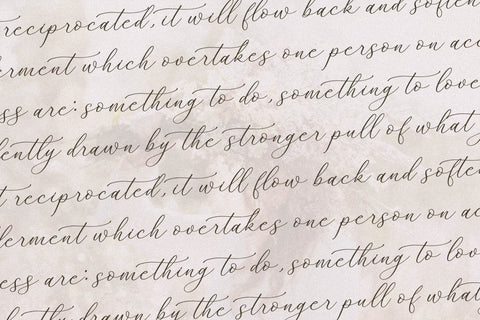 reciprocated, it will flow back and soften
ferment which overtakes one person on acc
ess are: something to do, something to love
lently drawn by the stronger pull of what
t reciprocated, it will flow back and soften
ferment which overtakes one person on ac
ess are: something to do, something to lov
lently drawn by the stronger pull of what